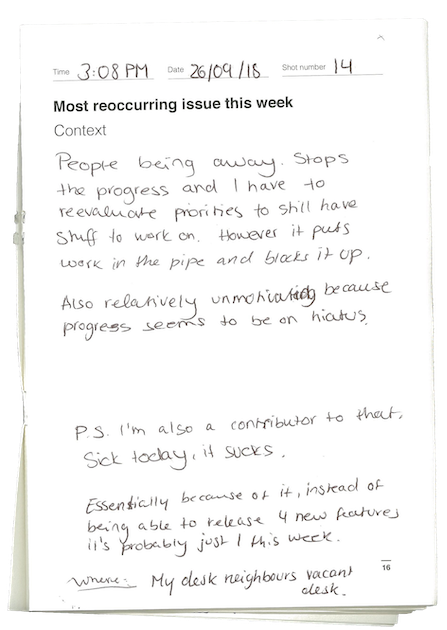 Time 3:08 PM Date 26/09/18 Shot number 14
Most reoccurring issue this week
Context
People being away. Stops
the progress and I have to
reevaluate priorities to still have
stuff to work on. However it puts
work in the pipe and blocks it up.
Also relatively unmotivating because
progress seems to be on hiatus.
P.S. I'm also a contributor to that,
Sick today, it sucks.
Essentially because of it, instead of
being able to release 4 new features
it's probably just 1 this week.
Where: My desk neighbours vacant
desk.
16